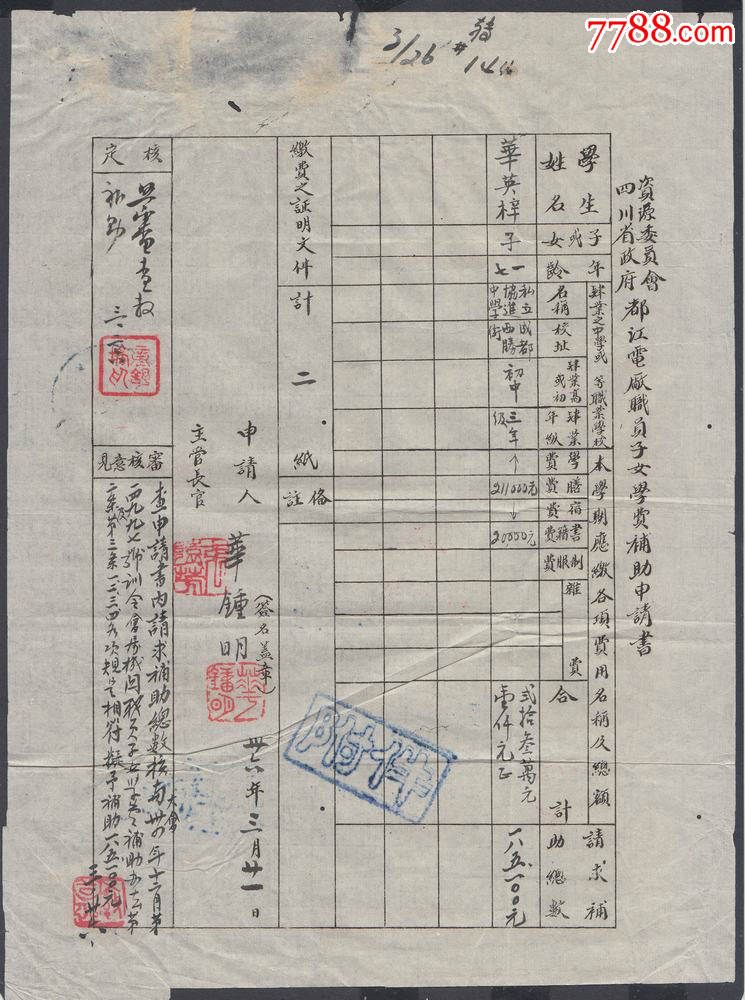 7788.com
3/26
資源委員會
四川省政府
都江電厰職員子女學費補助申請書
學生姓名
子或女
年齡
肄業之中學或 等職業學校
名稱
校址
肄業高或初
肄業年級
本學期應繳各項費用名稱及總額
學費
膳費
宿費
書籍費
制服費
雜費
合計
請求補助總數
華英梓
子
一七
私立協進中學
成都西勝街
初中
三年級
211000元
20000元
弍拾叁萬壹仟元正
一八五一〇〇元
繳費之証明文件計 二 紙
備註
附件
申請人 華鍾明 (簽名盖章)
卅六年三月廿一日
主管長官
審核意見
查申請書內請求補助總數核與大會卅四年十一月第
一四九九七號訓令會屬機関職員子女學費補助办法第
二条及第三条一二三四各項規定相符擬予補助一八五一〇〇元
核定